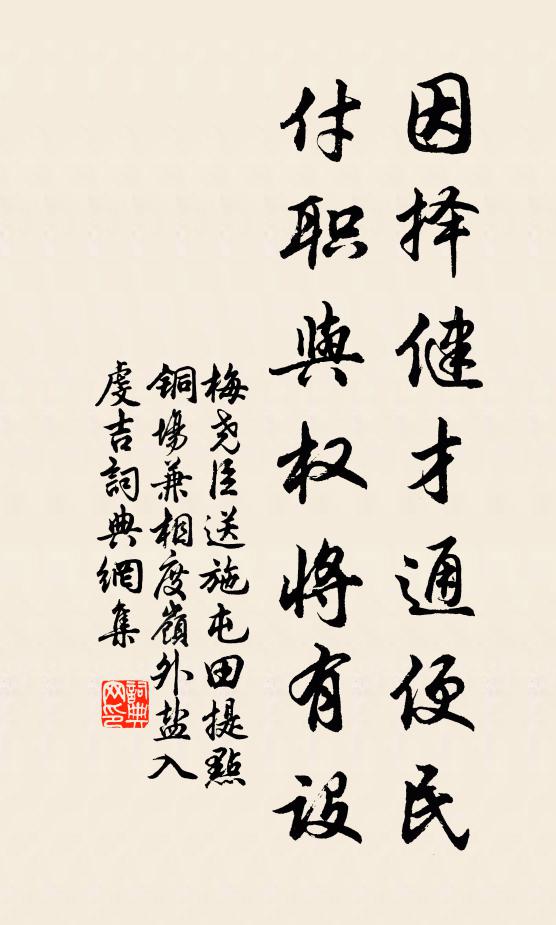 因择健才通便民
付职與权将有设
梅尧臣送施屯田提點
铜場兼相度嶺外盐入
虔吉詞典網集
詞典
网印